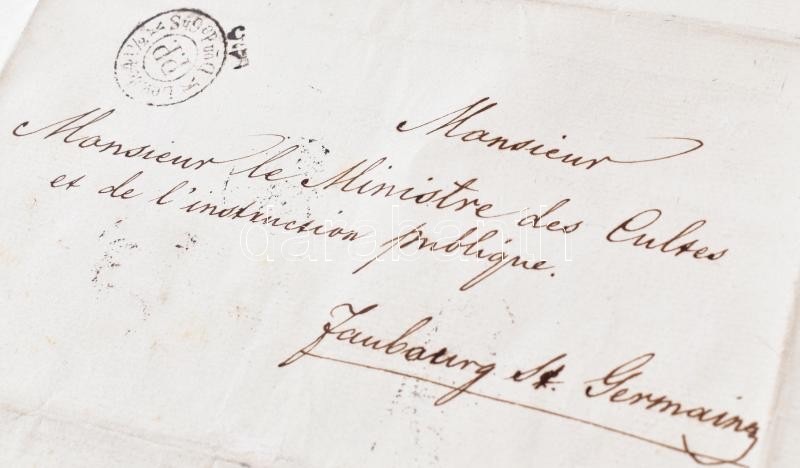 P.P.
Monsieur
Monsieur le Ministre des Cultes
et de l'instruction publique.
Faubourg St. Germain
darabanth